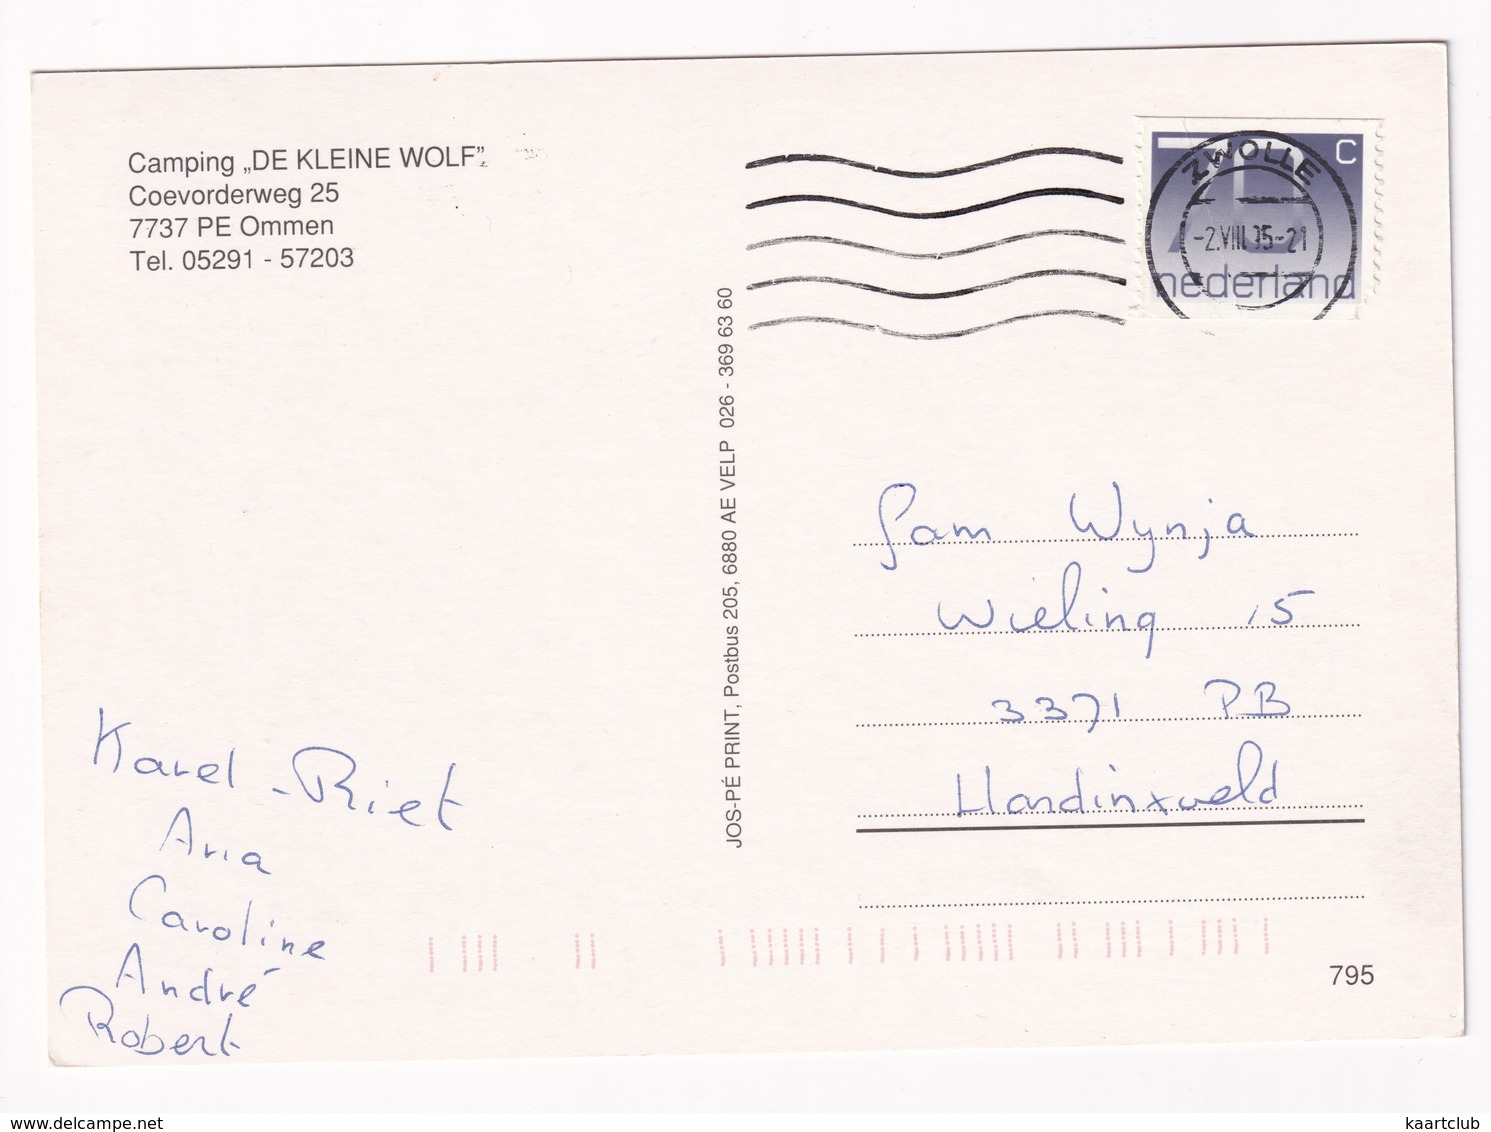 Camping „DE KLEINE WOLF”
Coevorderweg 25
7737 PE Ommen
Tel. 05291 - 57203
70 C
nederland
ZWOLLE
-2.VIII.95-21
JOS-PÉ PRINT, Postbus 205, 6880 AE VELP 026 - 369 63 60
fam Wynja
Wieling 15
3371 PB
Hardinxveld
Karel - Riet
Aria
Caroline
André
Robert
795
delcampe.net
kaartclub